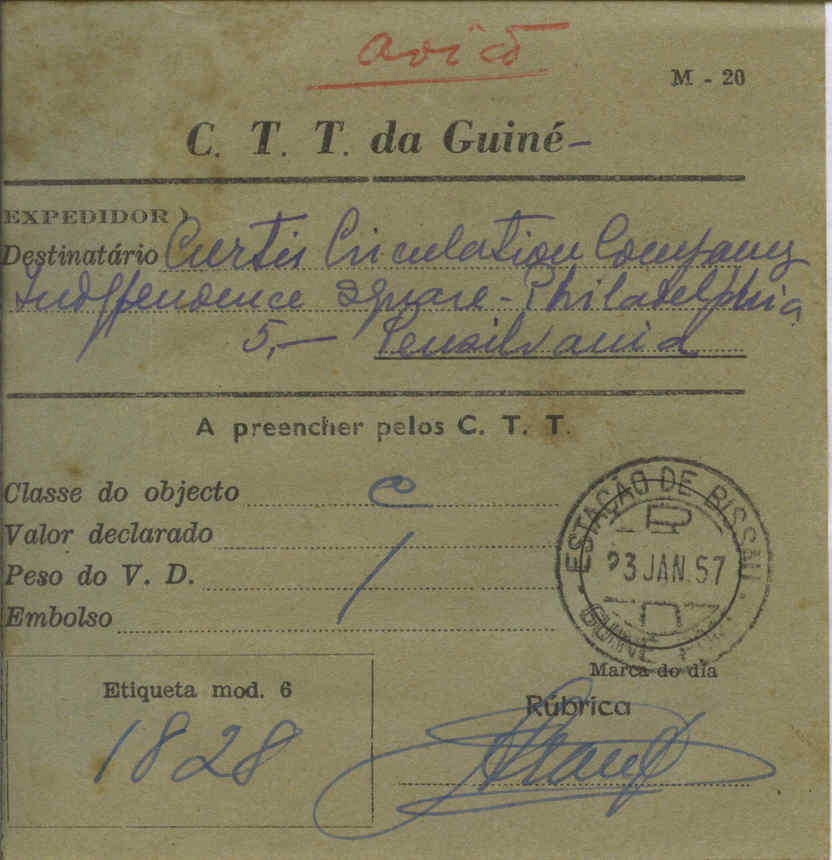 avião
M - 20
C. T. T. da Guiné -
EXPEDIDOR )
Destinatário Curtis Circulation Company
Independence Square - Philadelphia
5,- Pensilvania
A preencher pelos C. T. T.
Classe do objecto C
Valor declarado
Peso do V. D.
Embolso
ESTAÇÃO DE BISSAU
23 JAN. 57
GUINÉ
Marca do dia
Etiqueta mod. 6
Rúbrica
1828